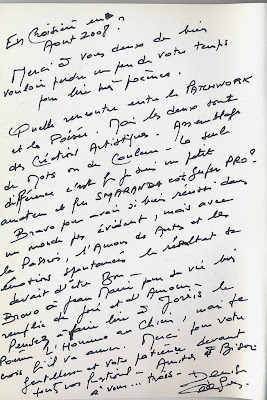 En Croisière en
Août 2008 ?
Merci à vous deux de bien
vouloir perdre un peu de votre temps
pour lire mes poèmes.
Quelle rencontre entre le PATCHWORK
et la Poésie. Mais les deux sont
des Créations Artistiques. Assemblage
de Mots ou de Couleurs. La seule
différence c'est que je suis un petit
amateur et que SMARANDA est Super PRO ?
Bravo pour avoir si bien réussi dans
un monde pas évident, mais avec
la Passion, l'Amour des Arts et les
émotions spontanées le résultat se
devait d'être Bon
Bravo à Jean Marie pour sa vie bien
remplie de Joie et d'Amour
Pensez à faire lire à le
Poème "L'Homme au Chien", mais je
crois qu'il va aimer. Merci pour votre
gentillesse et votre patience devant
Amitiés et Bisou
à vous ... trois -